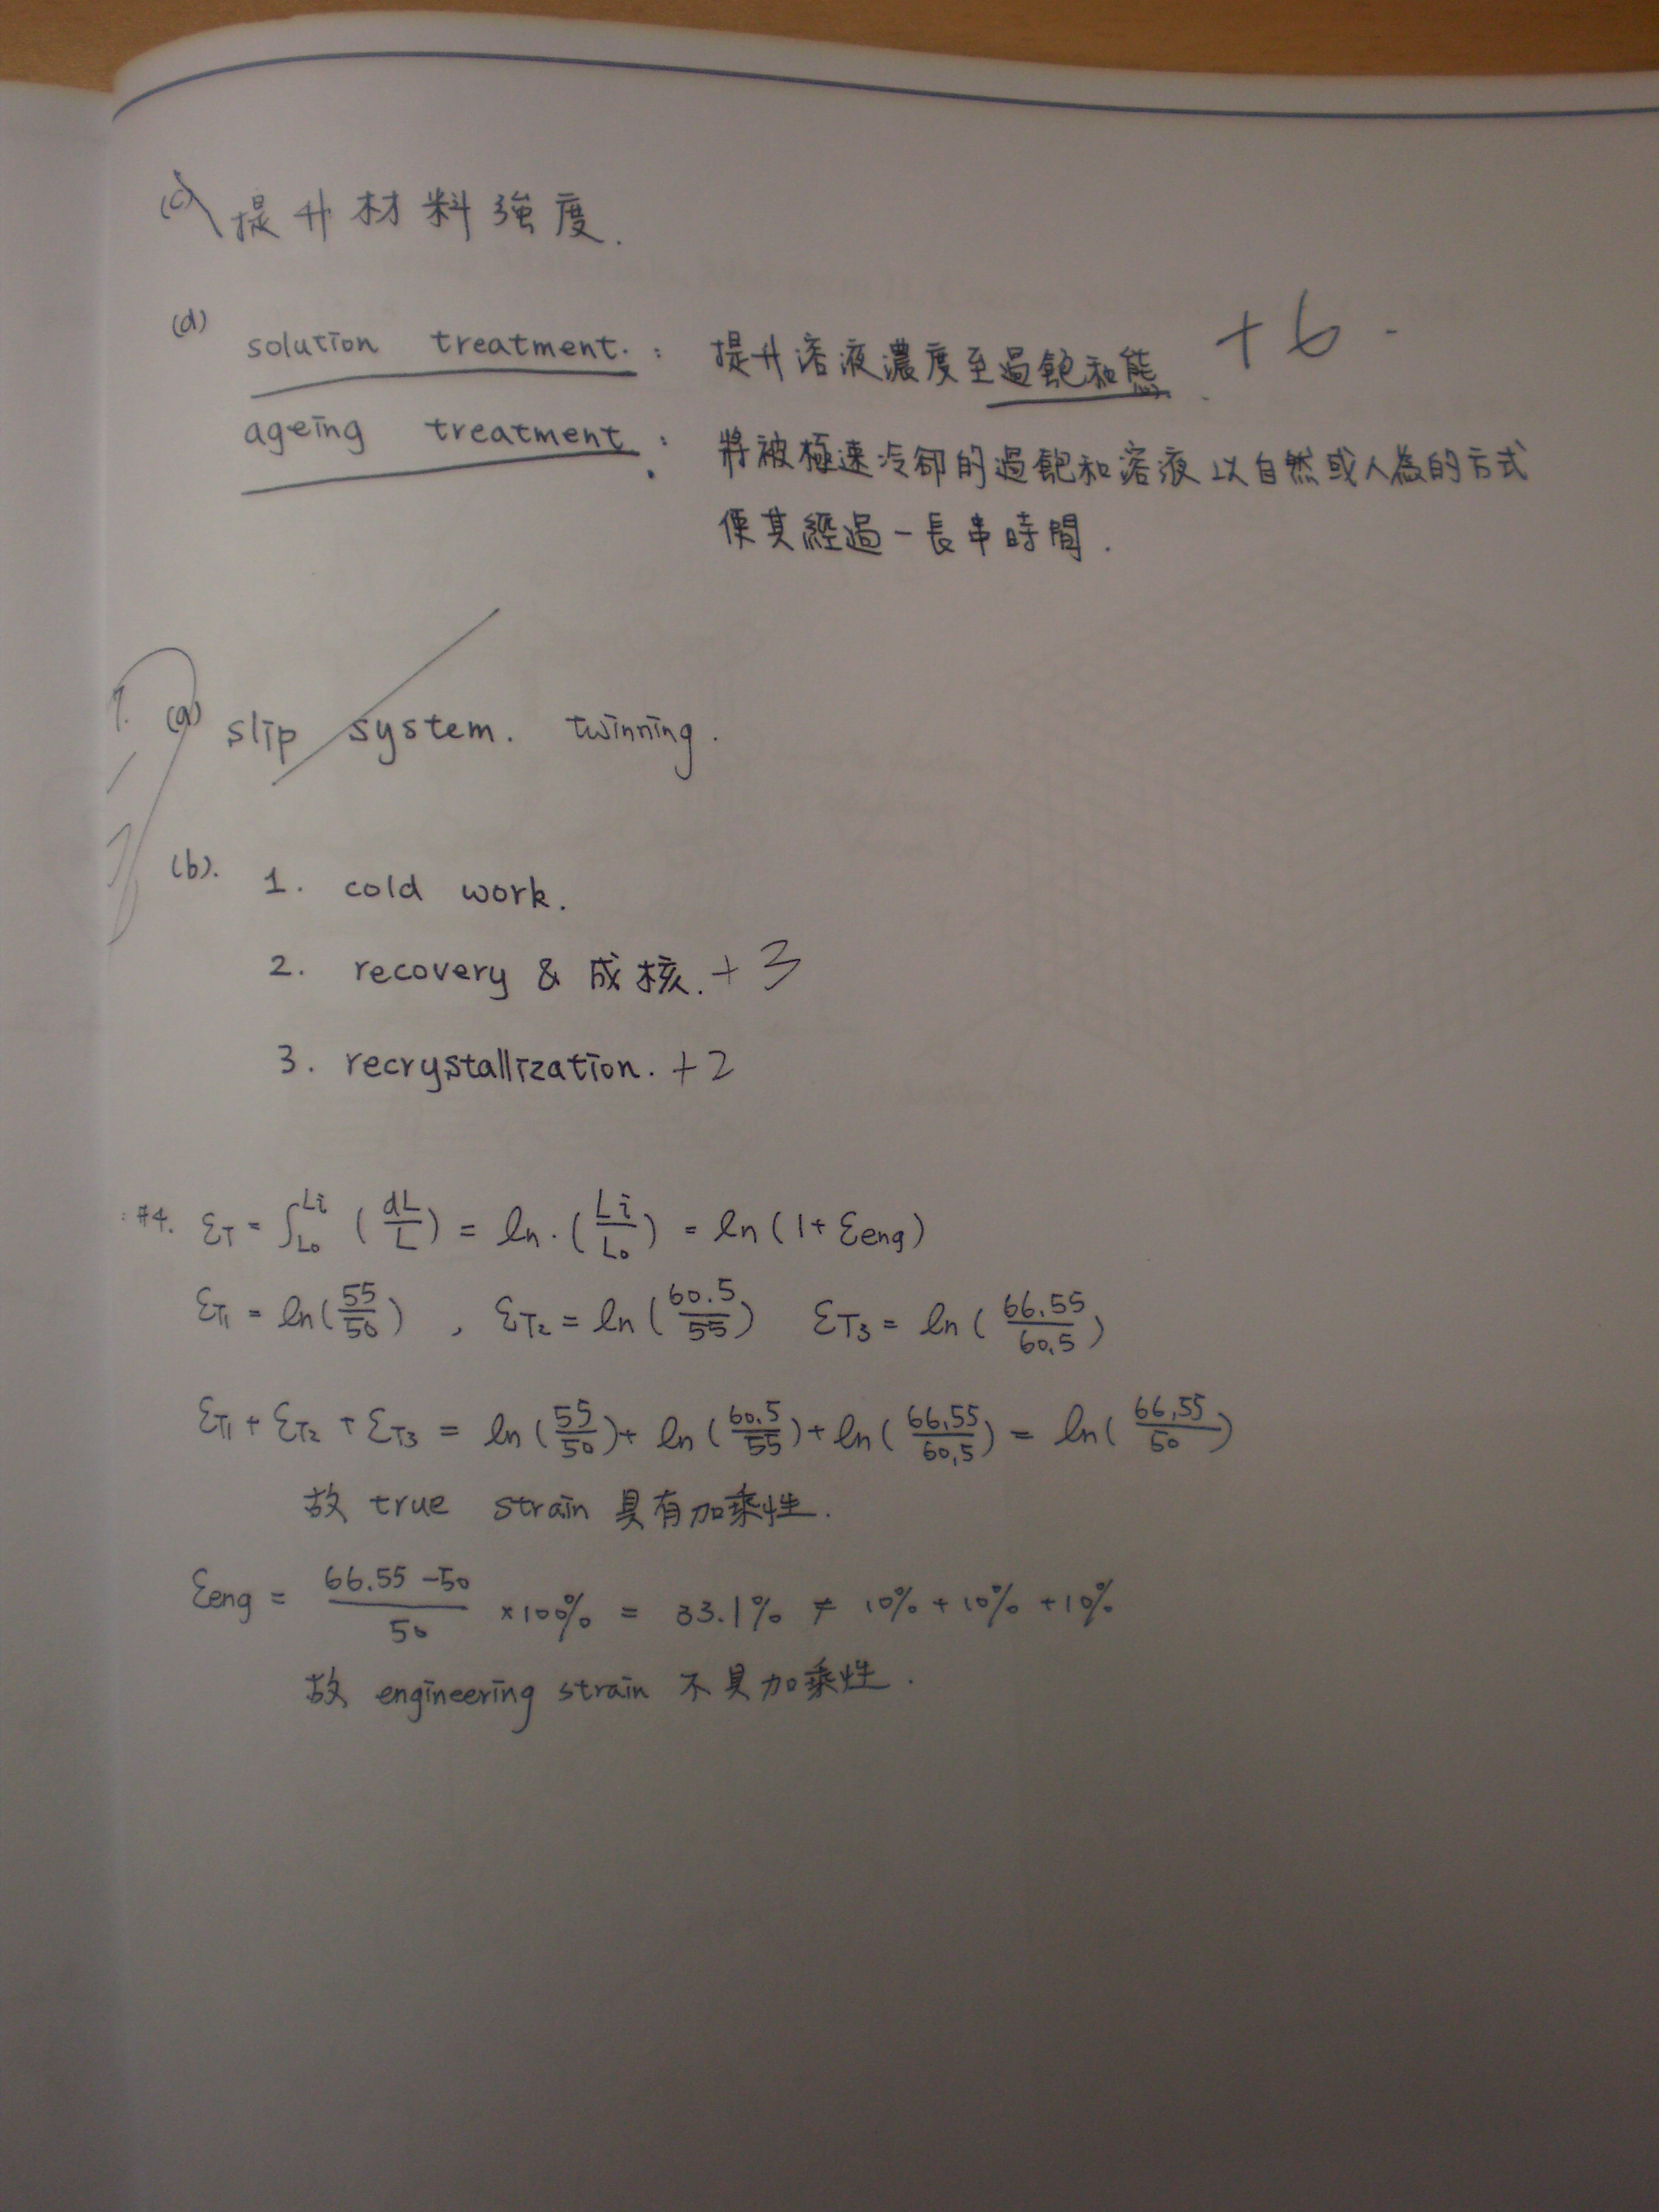 (c) 提升材料強度.
(d) solution treatment. : 提升溶液濃度至過飽和態. +6.
ageing treatment. : 將被極速冷卻的過飽和溶液以自然或人為的方式
使其經過一長串時間.
7. (a) slip system. twinning.
(b). 1. cold work.
2. recovery & 成核. +3
3. recrystallization. +2
#4. ε_T = ∫_{Lo}^{Li} (dL/L) = ln·(Li/Lo) = ln(1+ε_eng)
ε_T1 = ln(55/50) , ε_T2 = ln(60.5/55) ε_T3 = ln(66.55/60.5)
ε_T1 + ε_T2 + ε_T3 = ln(55/50) + ln(60.5/55) + ln(66.55/60.5) = ln(66.55/50)
故 true strain 具有加乘性.
ε_eng = (66.55-50)/50 ×100% = 33.1% ≠ 10% + 10% + 10%
故 engineering strain 不具加乘性.